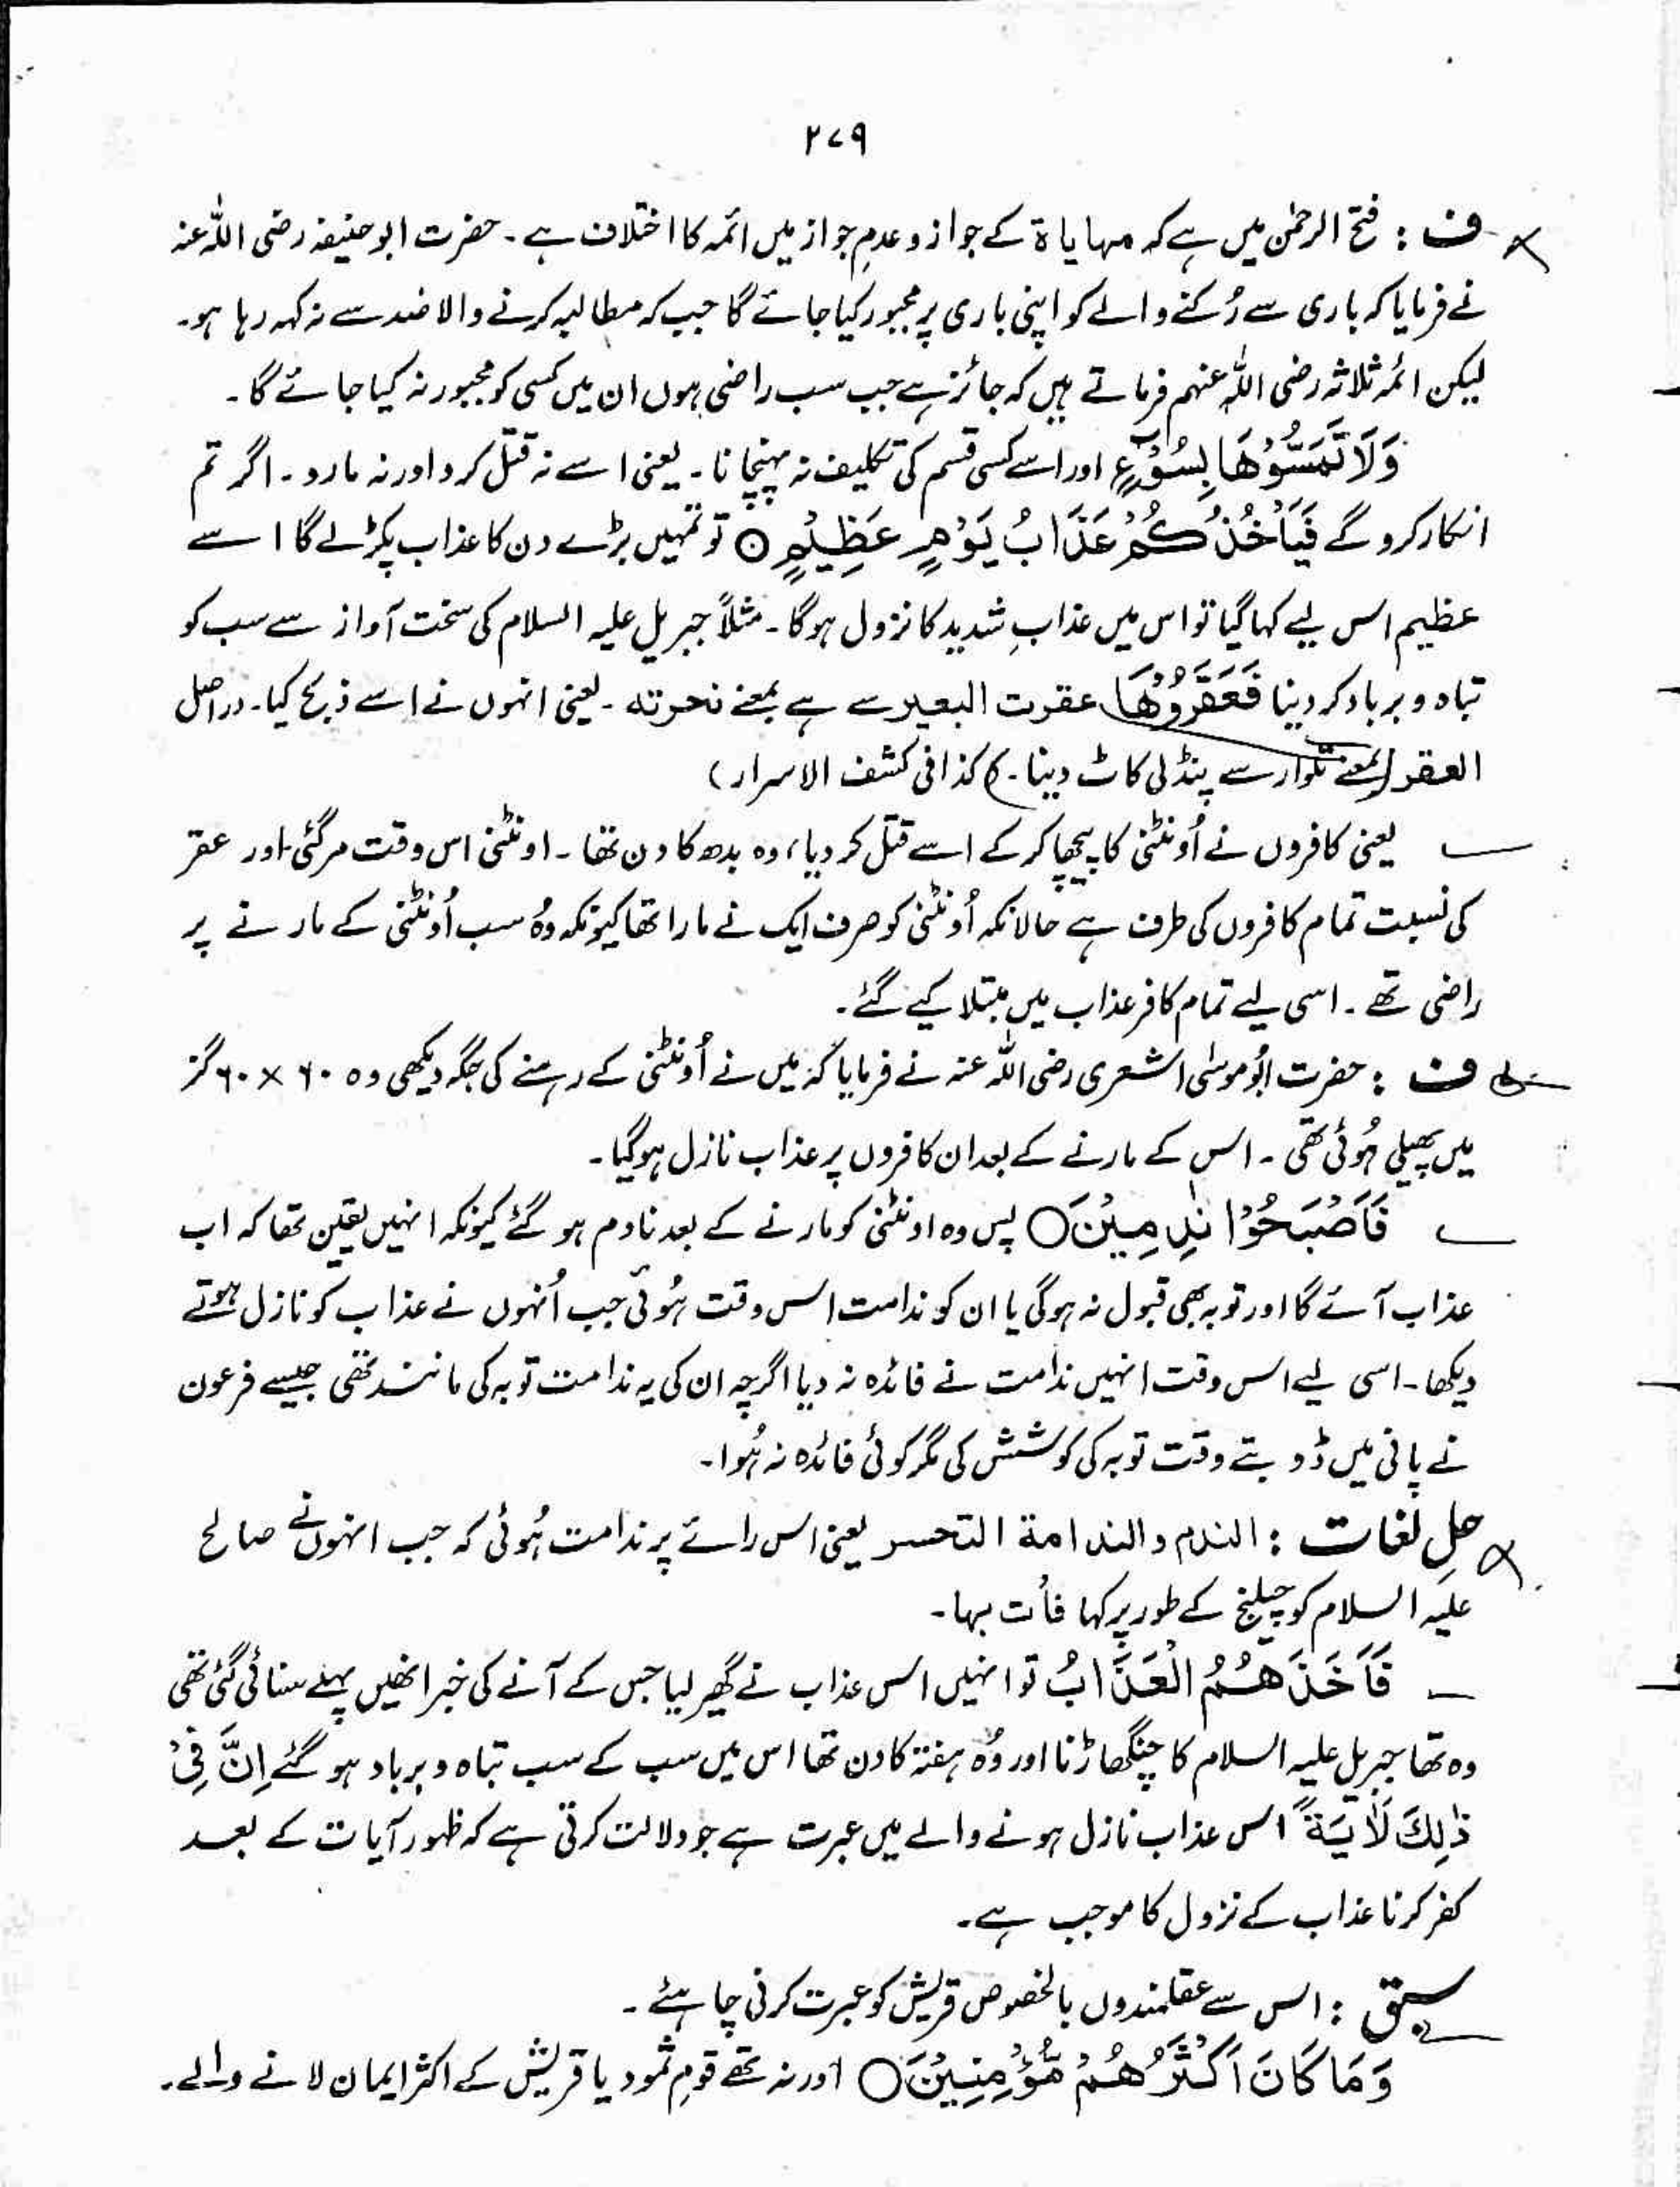 ۲۷۹
ف : فتح الرحمٰن میں ہے کہ مہایاۃ کے جواز و عدمِ جواز میں ائمہ کا اختلاف ہے۔ حضرت ابو حنیفہ رضی اللہ عنہ
نے فرمایا کہ باری سے رُکنے والے کو اپنی باری پر مجبور کیا جائے گا جب کہ مطالبہ کرنے والا ضد سے نہ کہہ رہا ہو۔
لیکن ائمہ ثلاثہ رضی اللہ عنہم فرماتے ہیں کہ جائز ہے جب سب راضی ہوں ان میں کسی کو مجبور نہ کیا جائے گا۔
وَلَا تَمَسُّوْهَا بِسُوْٓءٍ اور اسے کسی قسم کی تکلیف نہ پہنچانا۔ یعنی اسے نہ قتل کرو اور نہ مارو۔ اگر تم
انکار کرو گے فَيَأْخُذَكُمْ عَذَابُ يَوْمٍ عَظِيْمٍ ○ تو تمہیں بڑے دن کا عذاب پکڑ لے گا اسے
عظیم اس لیے کہا گیا تو اس میں عذابِ شدید کا نزول ہوگا۔ مثلاً جبریل علیہ السلام کی سخت آواز سے سب کو
تباہ و برباد کر دینا فَعَقَرُوْهَا عقرت البعیر سے ہے بمعنے نحرتہ۔ یعنی انہوں نے اسے ذبح کیا۔ در اصل
العقر (بمعنے تلوار سے پنڈلی کاٹ دینا۔) کذا فی کشف الاسرار )
یعنی کافروں نے اُونٹنی کا پیچھا کر کے اسے قتل کر دیا، وہ بدھ کا دن تھا۔ اونٹنی اس وقت مر گئی اور عقر
کی نسبت تمام کافروں کی طرف ہے حالانکہ اُونٹنی کو صرف ایک نے مارا تھا کیونکہ وُہ سب اُونٹنی کے مارنے پر
راضی تھے۔ اسی لیے تمام کافر عذاب میں مبتلا کیے گئے۔
ف : حضرت ابُو موسٰی اشعری رضی اللہ عنہ نے فرمایا کہ میں نے اُونٹنی کے رہنے کی جگہ دیکھی وہ ۶۰ × ۶۰ گز
میں پھیلی ہُوئی تھی۔ اس کے مارنے کے بعد ان کافروں پر عذاب نازل ہو گیا۔
فَاَصْبَحُوْا نٰدِمِيْنَ ○ پس وہ اونٹنی کو مارنے کے بعد نادم ہو گئے کیونکہ انہیں یقین تھا کہ اب
عذاب آئے گا اور توبہ بھی قبول نہ ہوگی یا ان کو ندامت اس وقت ہُوئی جب اُنہوں نے عذاب کو نازل ہوتے
دیکھا۔ اسی لیے اس وقت انہیں ندامت نے فائدہ نہ دیا اگرچہ ان کی یہ ندامت توبہ کی مانند تھی جیسے فرعون
نے پانی میں ڈوبتے وقت توبہ کی کوشش کی مگر کوئی فائدہ نہ ہُوا۔
حلِ لغات : الندم و الندامۃ التحسر یعنی اس رائے پر ندامت ہُوئی کہ جب انہوں نے صالح
علیہ السلام کو چیلنج کے طور پر کہا فأت بہا۔
فَاَخَذَهُمُ الْعَذَابُ تو انہیں اس عذاب نے گھیر لیا جس کے آنے کی خبر انھیں پہلے سنائی گئی تھی
وہ تھا جبریل علیہ السلام کا چنگھاڑنا اور وُہ ہفتہ کا دن تھا اس میں سب کے سب تباہ و برباد ہو گئے اِنَّ فِيْ
ذٰلِكَ لَاٰيَةً اس عذاب نازل ہونے والے میں عبرت ہے جو دلالت کرتی ہے کہ ظہور آیات کے بعد
کفر کرنا عذاب کے نزول کا موجب ہے۔
سبق : اس سے عقلمندوں بالخصوص قریش کو عبرت کرنی چاہئے۔
وَمَا كَانَ اَكْثَرُهُمْ مُّؤْمِنِيْنَ ○ اور نہ تھے قومِ ثمود یا قریش کے اکثر ایمان لانے والے۔